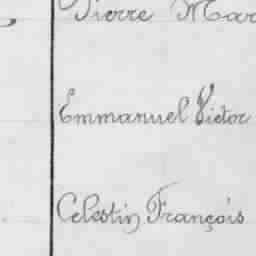 Pierre Mar
Emmanuel Victor
Célestin François